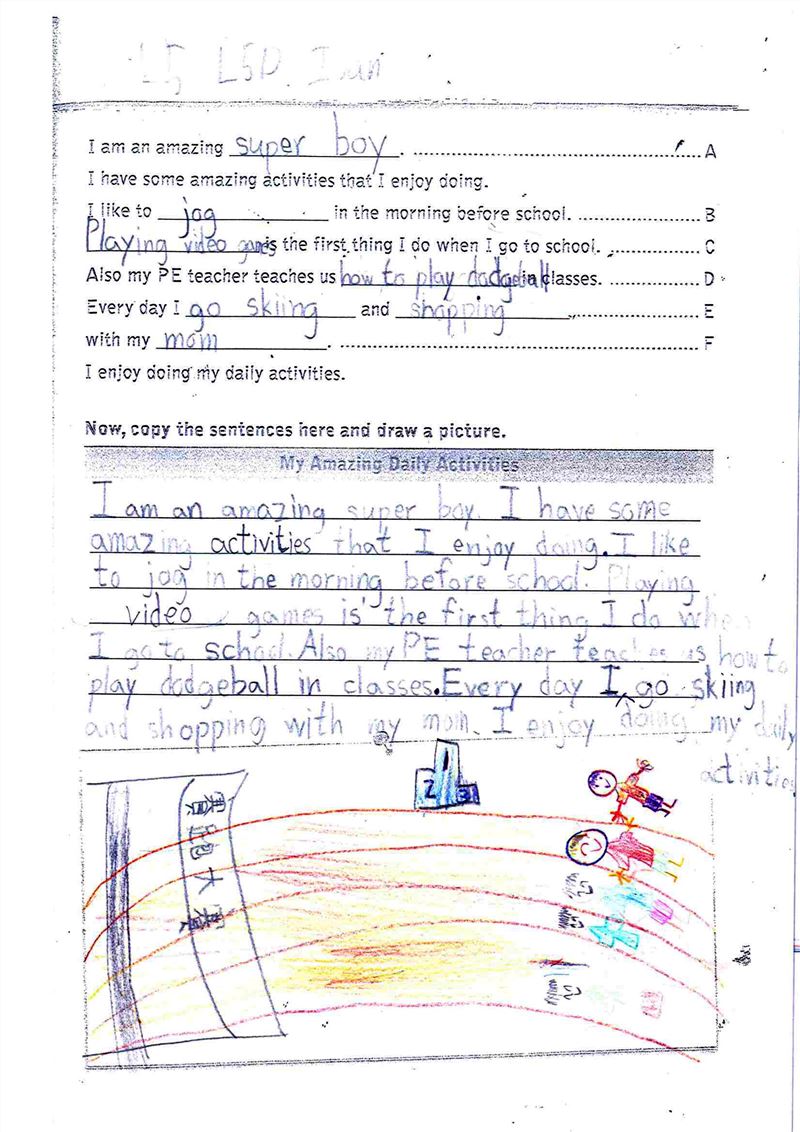 L5 L5D Ivan
I am an amazing super boy. A
I have some amazing activities that I enjoy doing.
I like to jog in the morning before school. B
Playing video games is the first thing I do when I go to school. C
Also my PE teacher teaches us how to play dodgeball in classes. D
Every day I go skiing and shopping E
with my mom. F
I enjoy doing my daily activities.
Now, copy the sentences here and draw a picture.
My Amazing Daily Activities
I am an amazing super boy. I have some
amazing activities that I enjoy doing. I like
to jog in the morning before school. Playing
video games is the first thing I do when
I go to school. Also my PE teacher teaches us how to
play dodgeball in classes. Every day I go skiing
and shopping with my mom. I enjoy doing my daily
activities
1
2 3
賽跑大賽